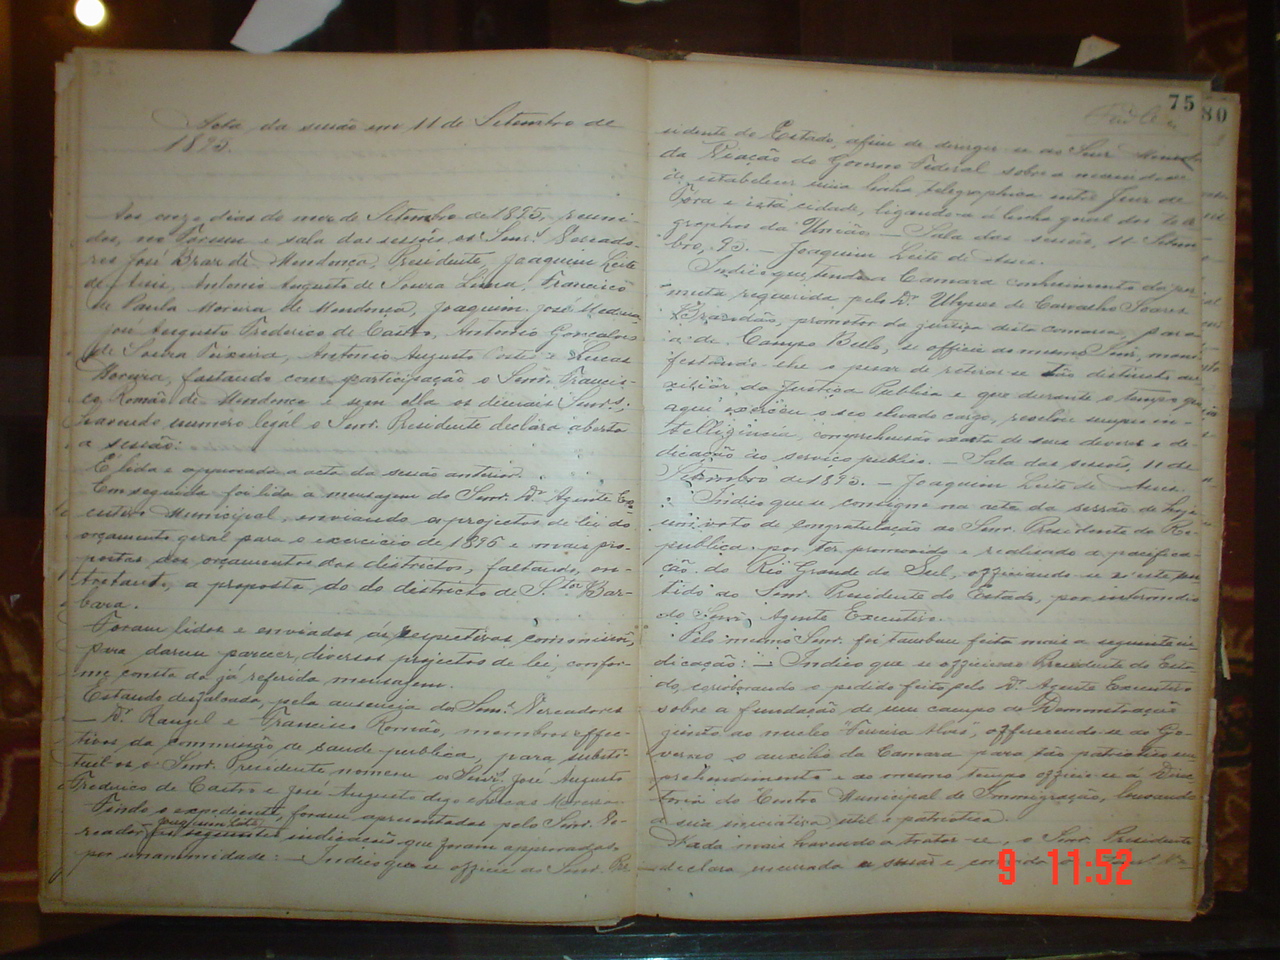 Acta da sessão em 11 de Setembro de
1895.
Aos onze dias do mez de Setembro de 1895, reuni-
dos, no Forum e sala das sessões os Senrs. Vereado-
res José Braz de Mendonça, Presidente, Joaquim Leite
de Assis, Antonio Augusto de Souza Lima, Francisco
de Paula Moreira de Mendonça, Joaquim José
José Augusto Frederico de Castro, Antonio Gonçalves
de Souza Teixeira, Antonio Augusto Costa e Lucas
Moreira, faltando com participação o Senr. Francis-
co Romão de Mendonça e sem ella os demais Senrs.;
havendo numero legal o Senr. Presidente declara aberta
a sessão.
É lida e approvada a acta da sessão anterior.
Em seguida foi lida a mensagem do Senr. Dr. Agente Exe-
cutivo Municipal, enviando os projectos de lei do
orçamento geral para o exercicio de 1896 e mais pro-
postas dos orçamentos dos districtos, faltando, en-
tretanto, a proposta do do districto de Sta. Bar-
bara.
Foram lidos e enviados ás respectivas commissões,
para darem parecer, diversos projectos de lei, confor-
me consta da já referida mensagem.
Estando desfalcada, pela ausencia dos Senrs. Vereadores
— Dr. Rangel e Francisco Romão, membros effec-
tivos da commissão de saude publica, para substi-
tuil-os o Senr. Presidente nomeou os Senrs. José Augusto
Frederico de Castro e José Augusto digo e Lucas Moreira.
Findo o expediente foram apresentadas pelo Senr. Ve-
reador Joaquim Leite as seguintes indicações que foram approvadas
por unanimidade: — Indico que se officie ao Senr. Pre-
75
80
sidente do Estado, afim de dirigir-se ao Senr. Ministro
da Viação do Governo Federal sobre a necessidade
de estabelecer uma linha telegraphica entre Juiz de
Fóra e esta cidade, ligando-a á linha geral dos tele-
graphos da União — Sala das sessões, 11 Setem-
bro, 95. — Joaquim Leite de Assis.
Indico que, tendo a Camara conhecimento da per-
muta requerida pelo Dr. Ulysses de Carvalho Soares
Brandão, promotor da justiça desta comarca, para
a de Campo Bello, se officie ao mesmo Senr., mani-
festando-lhe o pesar de retirar-se tão distincto au-
xiliar da Justiça Publica e que durante o tempo que
aqui exerceu o seo elevado cargo, revelou sempre in-
telligencia, comprehensão exacta de seus deveres e de-
dicação ao serviço publico. — Sala das sessões, 11 de
Setembro de 1895. — Joaquim Leite de Assis.
Indico que se consigne na acta da sessão de hoje
um voto de congratulação ao Senr. Presidente da Re-
publica por ter promovido e realisado a pacifica-
ção do Rio Grande do Sul, officiando-se n'este sen-
tido ao Senr. Presidente do Estado, por intermedio
do Senr. Agente Executivo.
Pelo mesmo Senr. foi tambem feita mais a seguinte in-
dicação: — Indico que se officie ao Presidente do Esta-
do, corroborando o pedido feito pelo Dr. Agente Executivo
sobre a fundação de um campo de Demonstração
junto ao nucleo Ferreira Alves, offerecendo-se ao Go-
verno o auxilio da Camara para tão patriotico em-
prehendimento e ao mesmo tempo officie-se á Direc-
toria do Centro Municipal de Immigração, louvando
a sua iniciativa util e patriotica.
Nada mais havendo a tratar-se, o Senr. Presidente
declara encerrada a sessão e convida
9 11:52